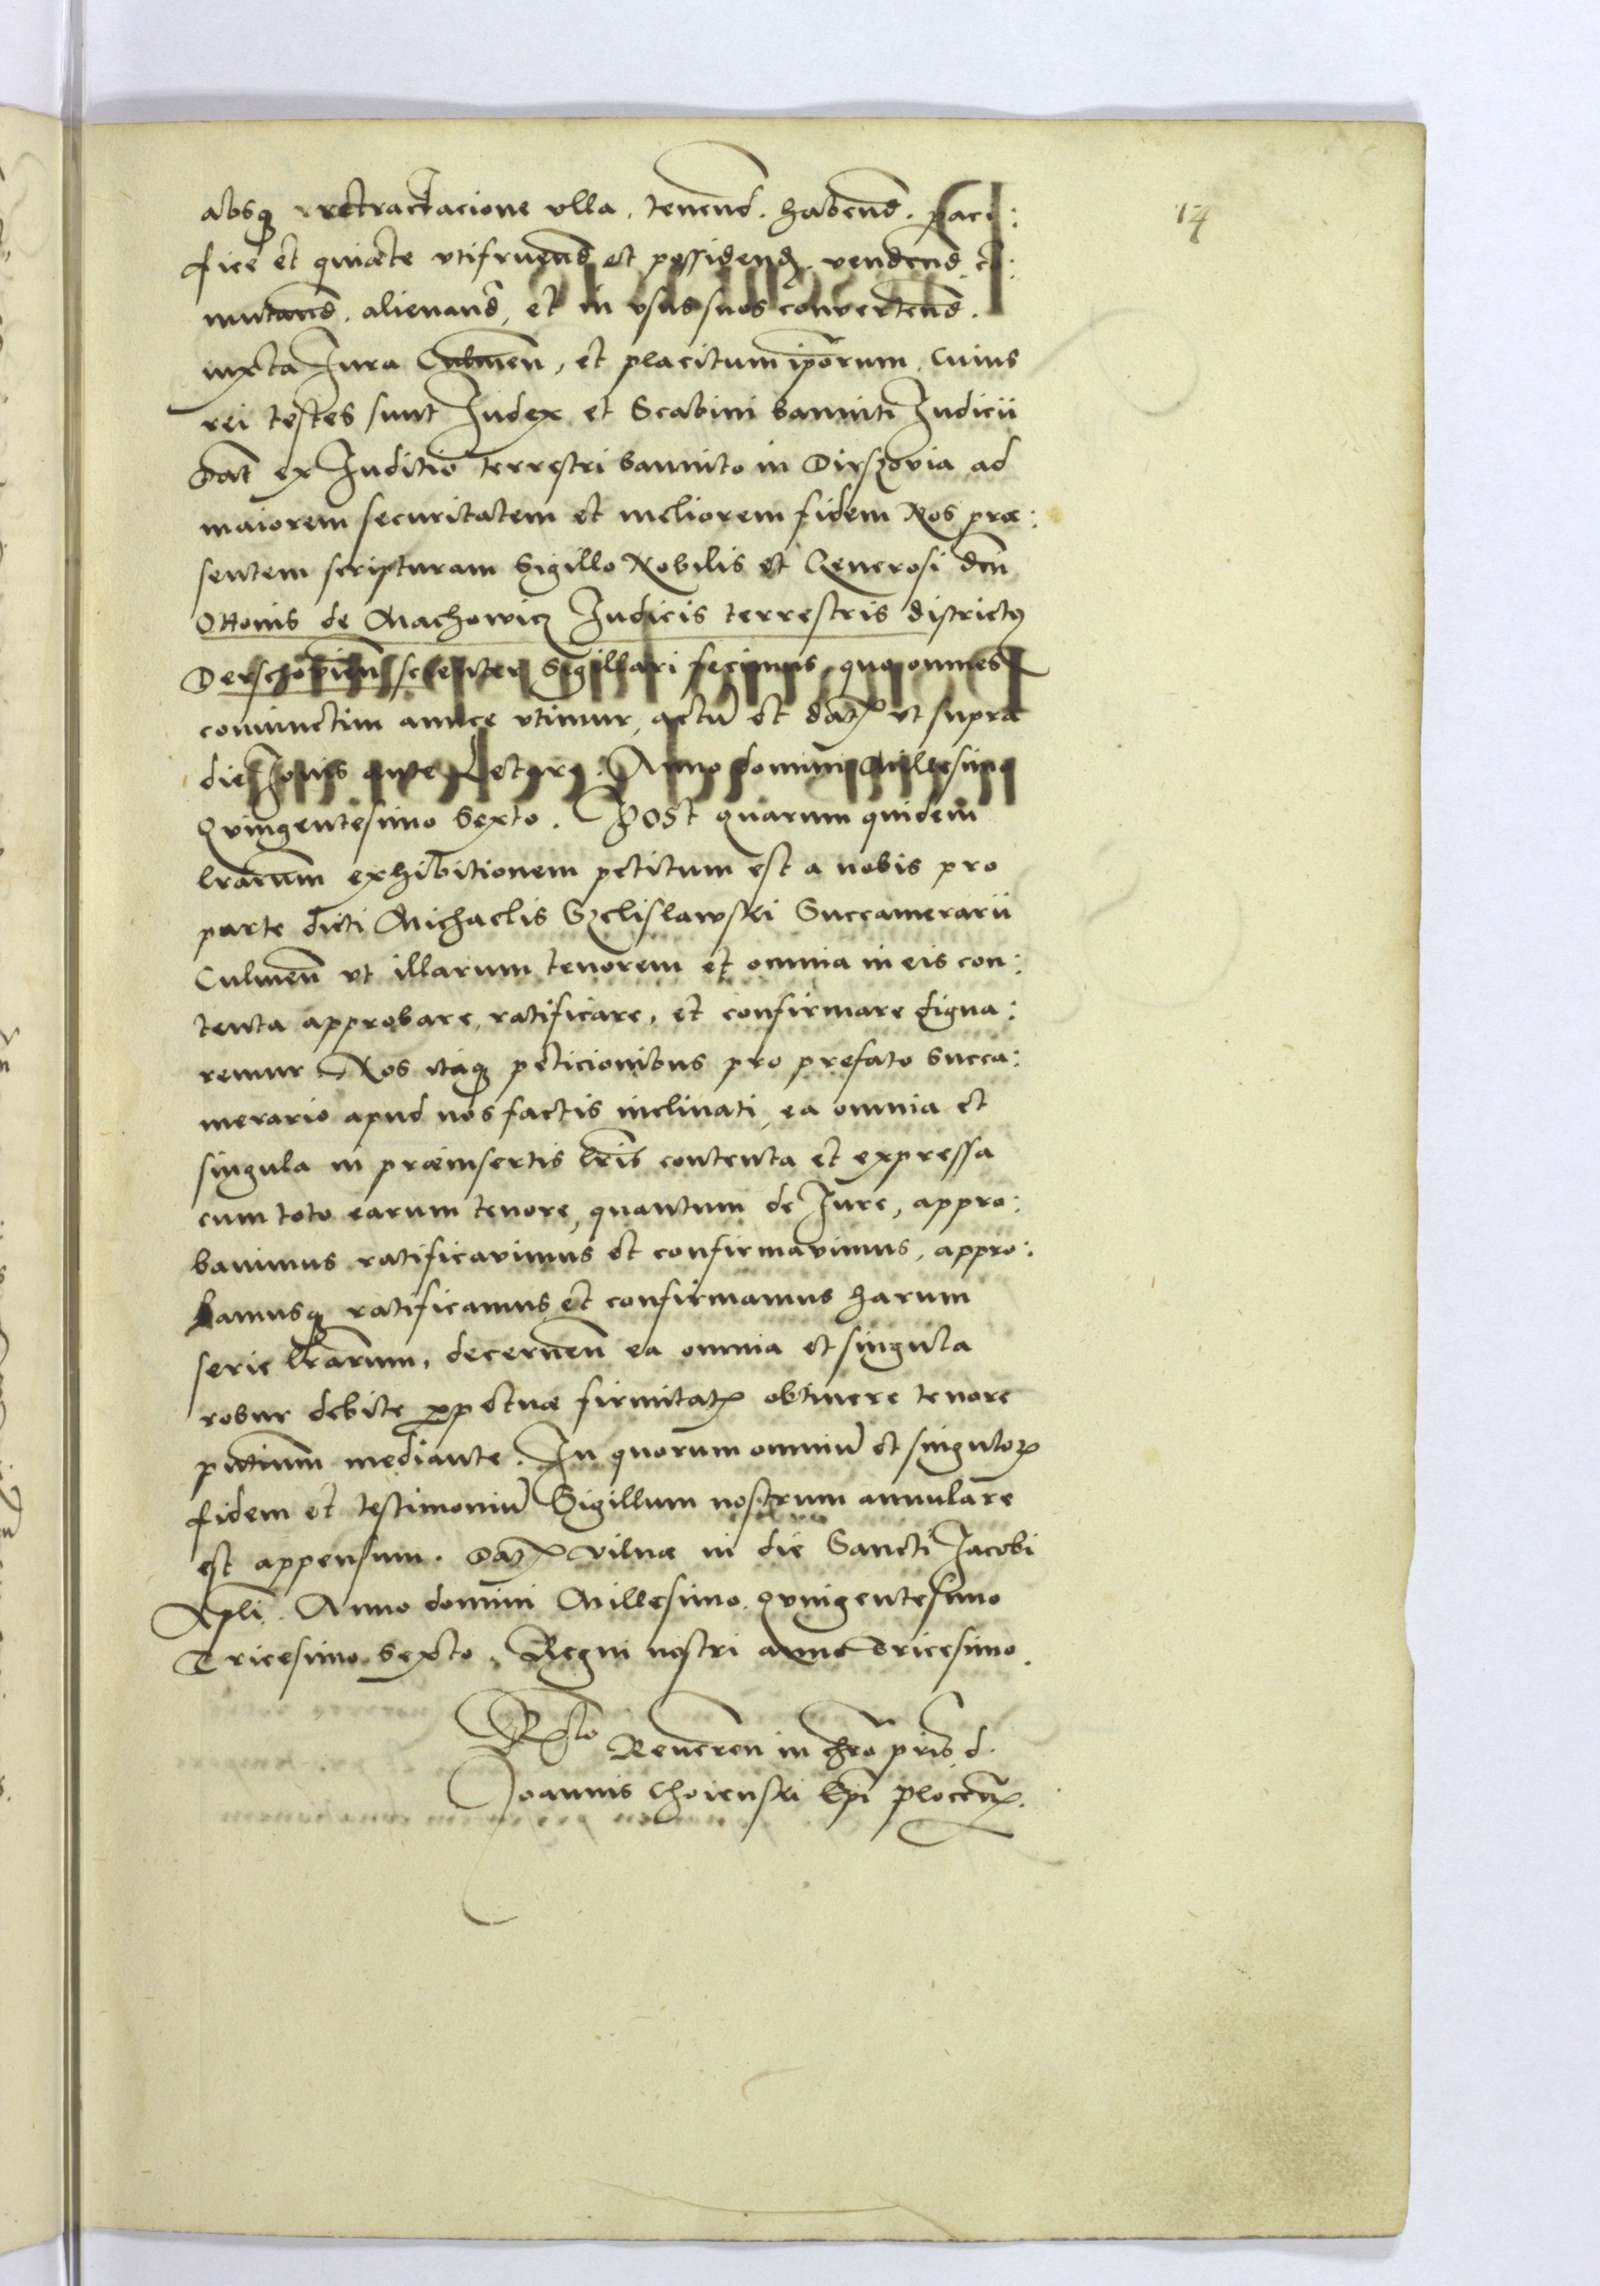 14
absq retractacione ulla, tenend. habend. paci:
fice et quiete utifruend et possidend. vendend co:
mutand. alienand, et in usus suos convertend.
iuxta Jura Culmen, et placitum iporum. Cuius
rei testes sunt Judex et Scabini banniti Judicii
Dat ex Juditio terrestri bannito in Dirszovia ad
maiorem securitatem et meliorem fidem Nos præ:
sentem scripturam Sigillo Nobilis et Generosi dni
Ottonis de Machowicz Judicis terrestris districtus
Derschovien scienter Sigillari fecimus, quo omnes
coniunctim amice utimur, actu et dat ut supra
die Jovis ante Letare. Anno domini Millesimo
Quingentesimo Sexto. Post quarum quidem
lrarum exhibitionem petitum est a nobis pro
parte dicti Michaelis Szelislawski Succamerarii
Culmen ut illarum tenorem et omnia in eis con:
tenta approbare, ratificare, et confirmare digna:
remur. Nos itaq peticionibus pro prefato Succa:
merario apud nos factis inclinati, ea omnia et
singula in præinsertis lris contenta et expressa
cum toto earum tenore, quantum de Jure, appro:
bavimus ratificavimus et confirmavimus, appro:
bamusq ratificamus et confirmamus harum
serie lrarum, decernen ea omnia et singula
robur debite perpetuæ firmitat obtinere tenore
pntium mediante. In quorum omniu et singulor
fidem et testimoniu Sigillum nostrum annulare
est appensum. Dat Vilnæ in die Sancti Jacobi
Apli. Anno domini Millesimo. Quingentesimo
Tricesimo Sexto. Regni nostri anno Tricesimo.
Rlto Reveren in chro pris d.
Joannis Choienski Epi Plocen.